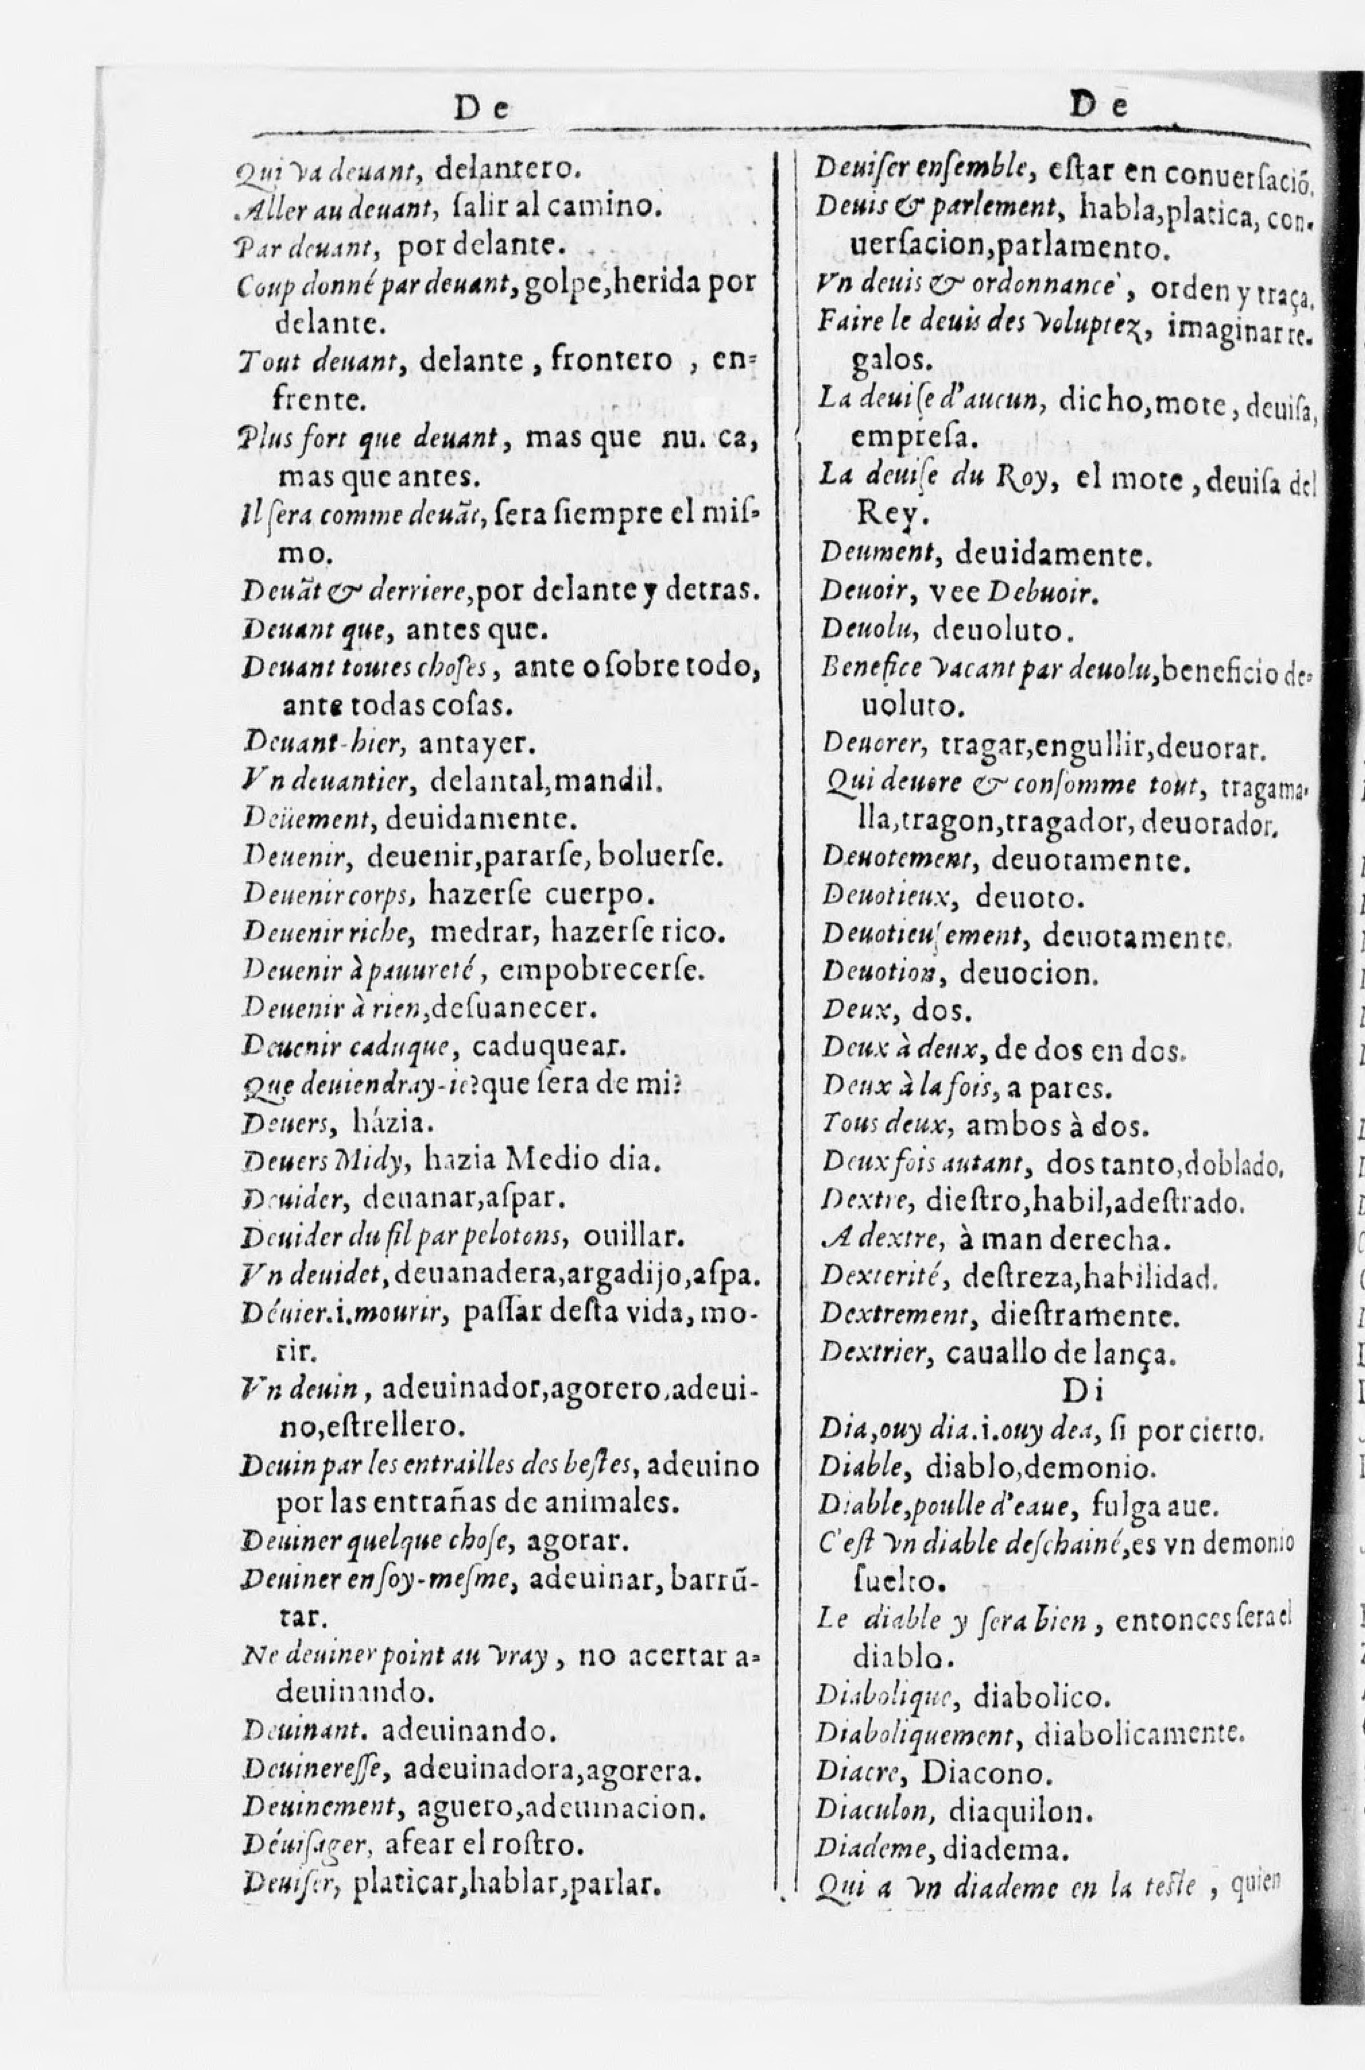 De
Qui va deuant, delantero.
Aller au deuant, ſalir al camino.
Par deuant, por delante.
Coup donné par deuant, golpe, herida por
delante.
Tout deuant, delante, frontero, en-
frente.
Plus fort que deuant, mas que nu. ca,
mas que antes.
Il ſera comme deuãt, ſera ſiempre el miſ-
mo.
Deuãt & derriere, por delante y detras.
Deuant que, antes que.
Deuant toutes choſes, ante o ſobre todo,
ante todas coſas.
Deuant-hier, antayer.
Vn deuantier, delantal, mandil.
Deüement, deuidamente.
Deuenir, deuenir, pararſe, boluerſe.
Deuenir corps, hazerſe cuerpo.
Deuenir riche, medrar, hazerſe rico.
Deuenir à pauureté, empobrecerſe.
Deuenir à rien, deſuanecer.
Deuenir caduque, caduquear.
Que deuiendray-ie? que ſera de mi?
Deuers, házia.
Deuers Midy, hazia Medio dia.
Deuider, deuanar, aſpar.
Deuider du fil par pelotons, ouillar.
Vn deuidet, deuanadera, argadijo, aſpa.
Déuier.i.mourir, paſſar deſta vida, mo-
rir.
Vn deuin, adeuinador, agorero, adeui-
no, eſtrellero.
Deuin par les entrailles des beſtes, adeuino
por las entrañas de animales.
Deuiner quelque choſe, agorar.
Deuiner en ſoy-meſme, adeuinar, barrũ-
tar.
Ne deuiner point au vray, no acertar a-
deuinando.
Deuinant. adeuinando.
Deuinereſſe, adeuinadora, agorera.
Deuinement, aguero, adeuinacion.
Déuiſager, afear el roſtro.
Deuiſer, platicar, hablar, parlar.
De
Deuiſer enſemble, eſtar en conuerſaciõ.
Deuis & parlement, habla, platica, con-
uerſacion, parlamento.
Vn deuis & ordonnance, orden y traça.
Faire le deuis des voluptez, imaginar re-
galos.
La deuiſe d'aucun, dicho, mote, deuiſa,
empreſa.
La deuiſe du Roy, el mote, deuiſa del
Rey.
Deument, deuidamente.
Deuoir, vee Debuoir.
Deuolu, deuoluto.
Benefice vacant par deuolu, beneficio de-
uoluto.
Deuorer, tragar, engullir, deuorar.
Qui deuore & conſomme tout, tragama-
lla, tragon, tragador, deuorador.
Deuotement, deuotamente.
Deuotieux, deuoto.
Deuotieuſement, deuotamente.
Deuotion, deuocion.
Deux, dos.
Deux à deux, de dos en dos.
Deux à la fois, a pares.
Tous deux, ambos à dos.
Deux fois autant, dos tanto, doblado.
Dextre, dieſtro, habil, adeſtrado.
A dextre, à man derecha.
Dexterité, deſtreza, habilidad.
Dextrement, dieſtramente.
Dextrier, cauallo de lança.
Di
Dia, ouy dia.i.ouy dea, ſi por cierto.
Diable, diablo, demonio.
Diable, poulle d'eaue, fulga aue.
C'eſt vn diable deſchainé, es vn demonio
ſuelto.
Le diable y ſera bien, entonces ſera el
diablo.
Diabolique, diabolico.
Diaboliquement, diabolicamente.
Diacre, Diacono.
Diaculon, diaquilon.
Diademe, diadema.
Qui a vn diademe en la teſte, quien